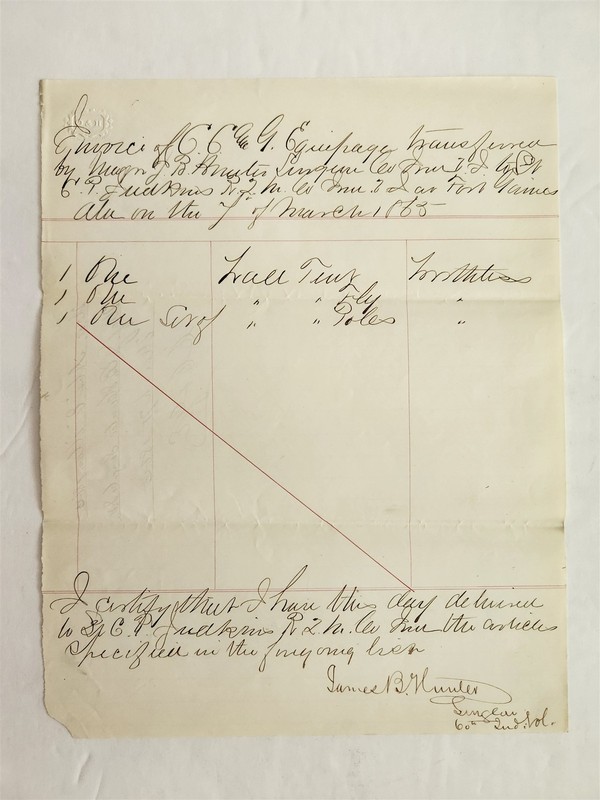 Invoice of C. C. & G. Equipage transferred
by Major J. B. Hunter Surgeon 60 Ind V. I. to Lt
C. P. Judkins R. Q. M. 60 Ind V I at Fort Gaines
Ala on the 7" of March 1865
1 One Wall Tent Worthless
1 One " " Fly "
1 One Set of " " Poles "
I certify that I have this day delivered
to Lt C. P. Judkins R. Q. M. 60 Ind the articles
specified in the foregoing list
James B. Hunter
Surgeon
60th Ind. Vol.